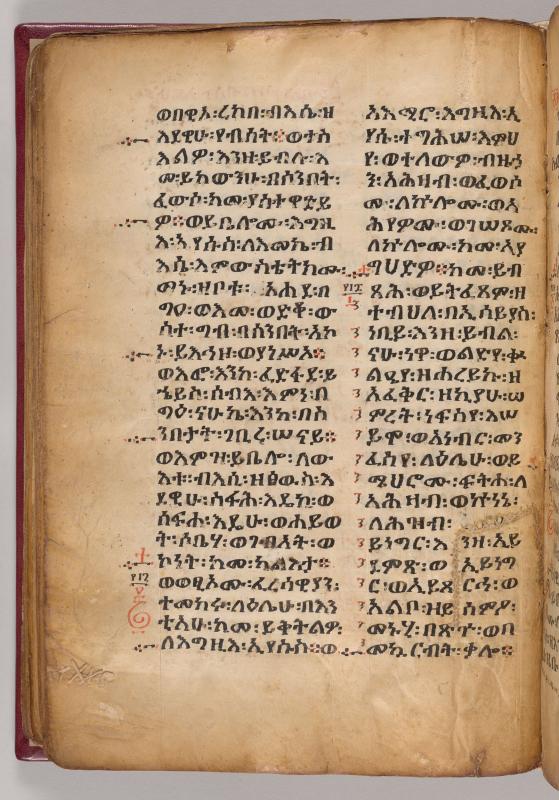 ወበዊኦ፡ረከበ፡ብእሴ፡ዘ
እደዊሁ፡የብሰት።ወተስ
እልዎ፡እንዘ፡ይብሉ፡እ
መ፡ይከውንሁ፡በሰንበት፡
ፈውሶ፡ከመ፡ያስተዋድይ
ዎ።ወይቤሎሙ፡እግዚ
እ፡ኢየሱስ፡ለእመኬ፡ብ
እሴ፡እምውስቴትክሙ፡
መኑ፡ዘቦቱ፡አሐዱ፡በ
ግዐ፡ወእመ፡ወድቀ፡ው
ስተ፡ግብ፡በሰንበት፡አኮ
ኑ፡ይእኅዝ፡ወያነሥእ።
ወእፎ፡እንከ፡ፈድፋደ፡ይ
ኄይስ፡ሰብእ፡እምነ፡በ
ግዕ፡ናሁ፡ኬ፡እንከ፡በስ
ንበታት፡ገቢረ፡ሠናይ።
ወእምዝ፡ይቤሎ፡ለው
እቱ፡ብእሲ፡ዘፀዉስ፡እ
ደዊሁ፡ስፋሕ፡እዴከ፡ወ
ሰፍሐ፡እዴሁ፡ወሐይወ
ት፡ሶቤሃ፡ወገብአት፡ወ
ኮነት፡ከመ፡ካልእታ።
ወወፂኦሙ፡ፈረሳዊያን፡
ተመክሩ፡ለዕሌሁ፡በእን
ቲአሁ፡ከመ፡ይቅትልዎ፡
ለእግዚእ፡ኢየሱስ።ወ
አእሚሮ፡እግዚእ፡ኢ
የሱ፡ተግሕሠ፡እምህ
የ፡ወተለውዎ፡ብዙኃ
ን፡አሕዛብ፡ወፈወሶ
ሙ፡ለኵሎሙ፡ወአ
ሕየዎሙ፡ወገሠጾሙ፡
ለኵሎሙ፡ከመ፡ኢያ
ግህድዎ።ከመ፡ይብ
ጻሕ፡ወይትፈጸም፡ዘ
ተብህለ፡በኢሳይያስ፡
ነቢይ፡እንዘ፡ይብል፡
ናሁ፡ነዋ፡ወልድየ፡ቍ
ልዔየ፡ዘሐረይኩ፡ዘ
አፈቅር፡ዘኪያሁ፡ሠ
ምረት፡ነፍስየ፡እሠ
ይሞ፡ወእነብር፡መን
ፈስየ፡ለዕሌሁ፡ወይ
ሜህሮሙ፡ፍትሐ፡ለ
አሕዛብ፡ወኵነኔ፡
ለሕዝብ፡
ይነግር፡እ ንዘ፡ኢይ
ደምጽ፡ወ ኢይነግ
ር፡ወኢይጸ ርሕ፡ወ
አልቦ፡ዘይ ሰምዖ፡
መኑሂ፡በጽጐ፡ወበ
መኳርብት፡ቃሎ።